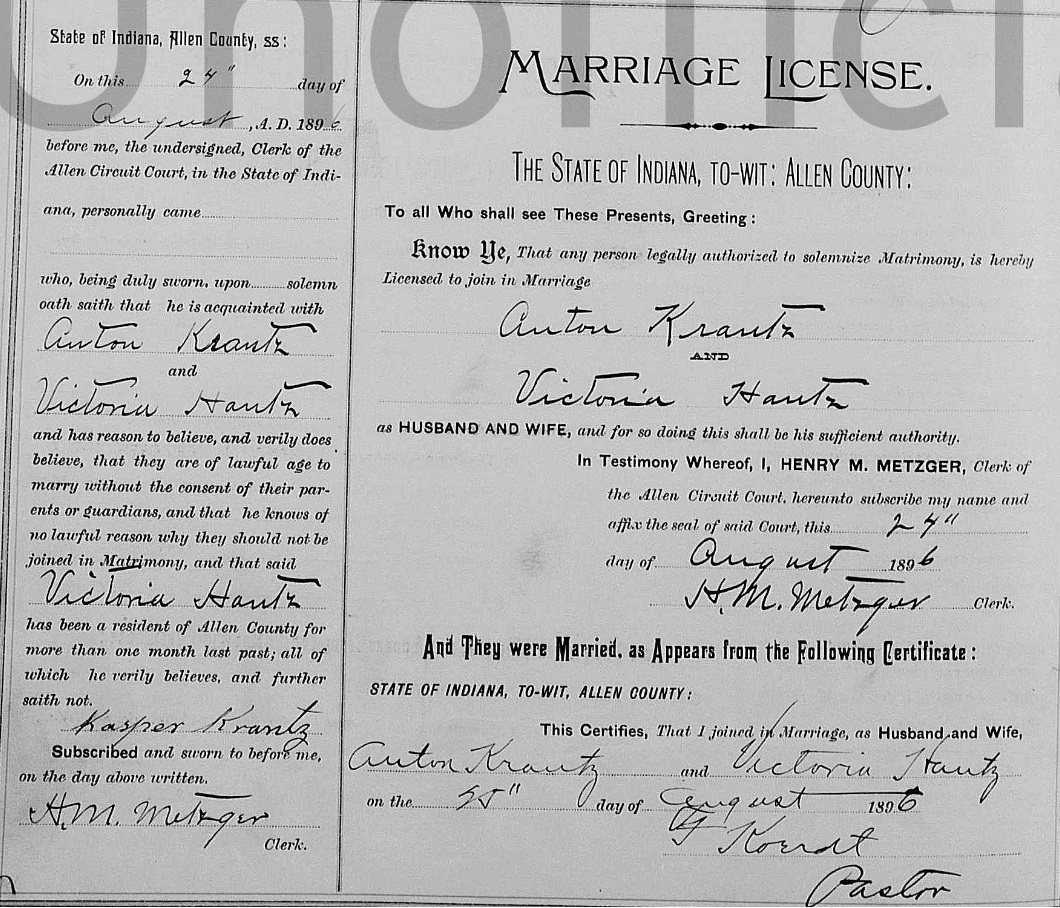 Unoffici
State of Indiana, Allen County, ss:
On this 24" day of
August, A. D. 1896
before me, the undersigned, Clerk of the
Allen Circuit Court, in the State of Indi-
ana, personally came
who, being duly sworn, upon solemn
oath saith that he is acquainted with
Anton Krantz
and
Victoria Hautz
and has reason to believe, and verily does
believe, that they are of lawful age to
marry without the consent of their par-
ents or guardians, and that he knows of
no lawful reason why they should not be
joined in Matrimony, and that said
Victoria Hautz
has been a resident of Allen County for
more than one month last past; all of
which he verily believes, and further
saith not.
Kasper Krantz
Subscribed and sworn to before me,
on the day above written.
H. M. Metzger
Clerk.
MARRIAGE LICENSE.
THE STATE OF INDIANA, TO-WIT: ALLEN COUNTY:
To all Who shall see These Presents, Greeting:
Know Ye, That any person legally authorized to solemnize Matrimony, is hereby
Licensed to join in Marriage
Anton Krantz
AND
Victoria Hautz
as HUSBAND AND WIFE, and for so doing this shall be his sufficient authority.
In Testimony Whereof, I, HENRY M. METZGER, Clerk of
the Allen Circuit Court, hereunto subscribe my name and
affix the seal of said Court, this 24"
day of August 1896
H. M. Metzger Clerk.
And They were Married, as Appears from the Following Certificate:
STATE OF INDIANA, TO-WIT, ALLEN COUNTY:
This Certifies, That I joined in Marriage, as Husband and Wife,
Anton Krantz and Victoria Hautz
on the 25" day of August 1896
F Koerdt
Pastor